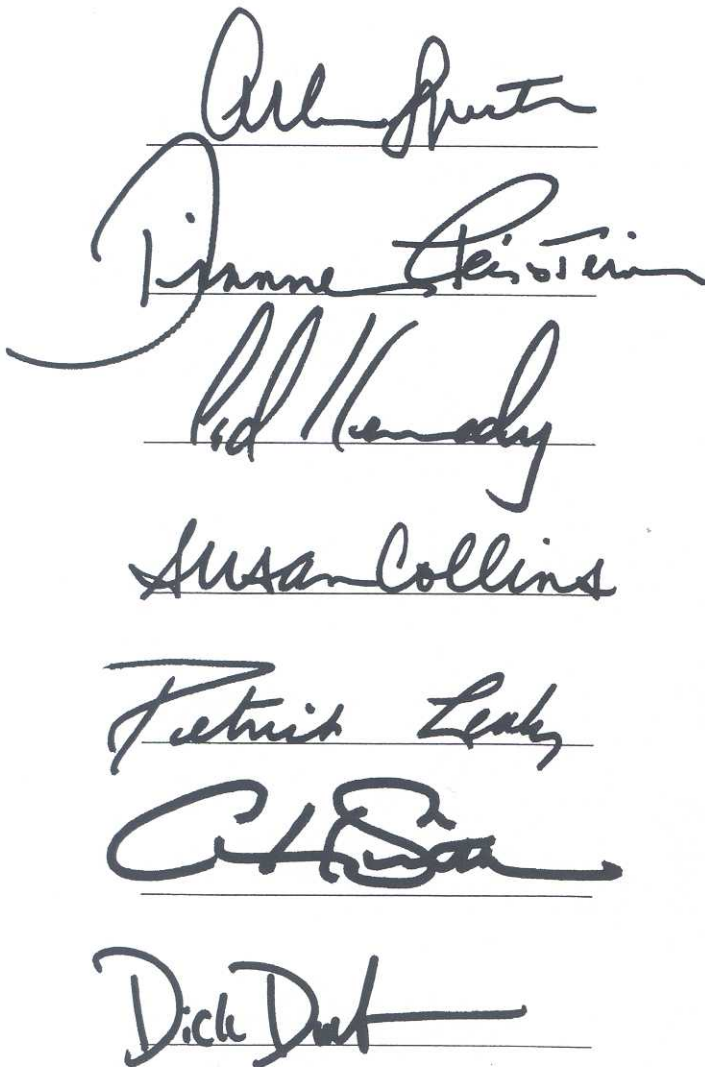 Arlen Specter
Dianne Feinstein
Ted Kennedy
Susan Collins
Patrick Leahy
Smith
Dick Durbin